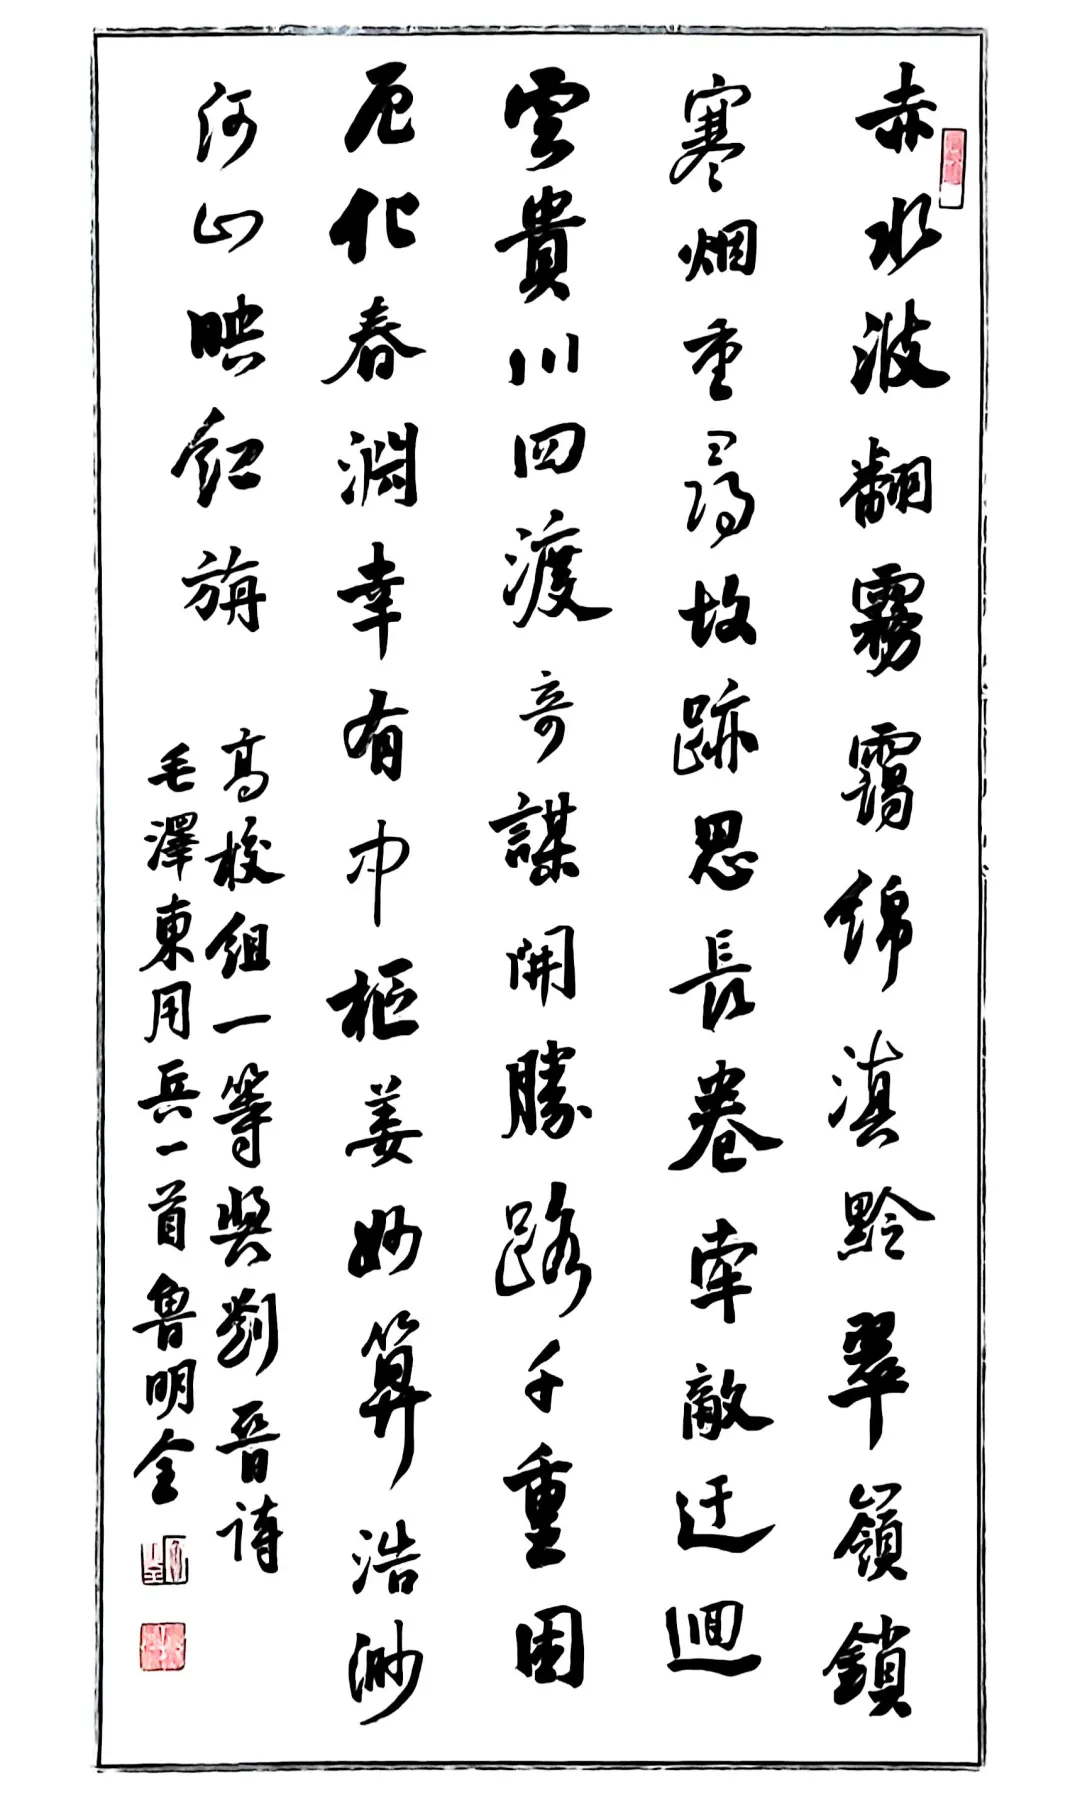 赤水波翻霧靄綿滇黔翠嶺鎖
寒烟重尋故跡思長卷牽敵迂迴
雲貴川四渡奇謀開勝路千重困
厄化春淵幸有中樞姜妙算浩渺
河山映紅旃
高校组一等奖劉晋诗
毛澤東用兵一首魯明全